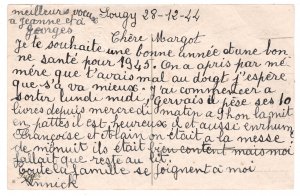 meilleurs voeux
a Jeanne et à
Georges
Lougy 28-12-44
Chère Margot
Je te souhaite une bonne année et une bon
ne santé pour 1945. On a apris par mé
mère que t'avais mal au doigt j'espère
que s'a va mieux. J'ai commencer a
sortir lundi midi, Gervais il pèse ses 10
livres depuis mercredi matin a 9h on la mit
en pattes il est heureux d et aussi enrhum
Françoise et Alain on était a la messe
de minuit ils était bien content mais moi
fallait que reste au lit.
toute la famille se joignent à moi
Annick